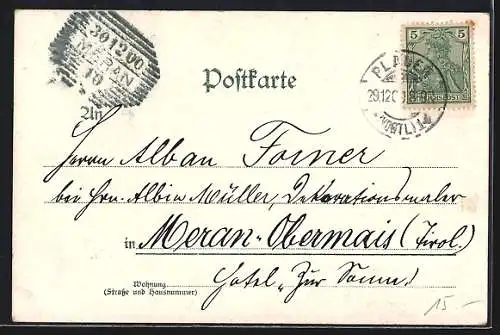 301200
MERAN
10
Postkarte
5 5
PLAUEN
29.12.0
(VOGTL)
An
Herrn Alban Forner
bei Hrn. Albin Müller, Dekorationsmaler
in Meran-Obermais (Tirol.)
Wohnung
(Straße und Hausnummer)
Hotel „Zur Sonne"
15.-